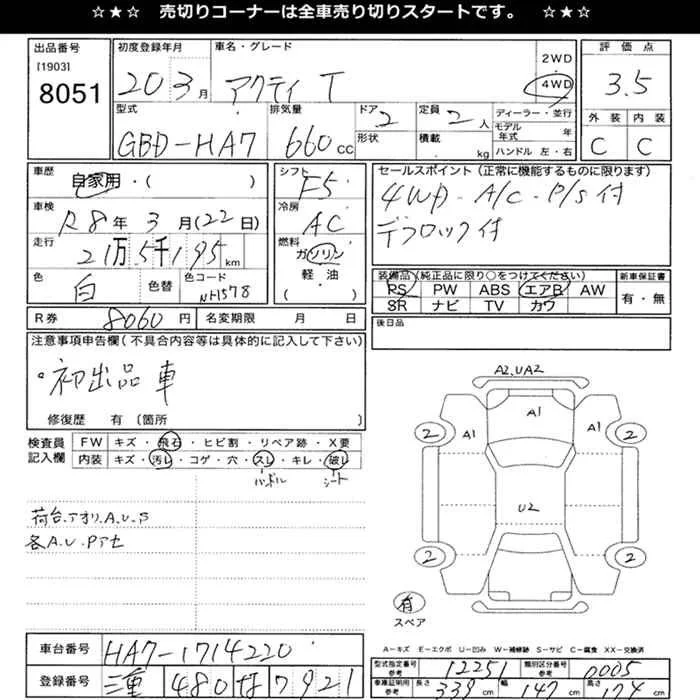 ☆★☆ 売切りコーナーは全車売り切りスタートです。 ☆★☆
出品番号 初度登録年月 車名・グレード 評価点
[1903] 8051 20 3月 アクティ T 2WD 4WD 3.5
型式 排気量 ドア 定員 ディーラー・並行 外装 内装
GBD-HA7 660cc 2 2人 モデル年式 年 C C
形状 積載 kg ハンドル 左・右
車歴 自家用・( ) シフト F5 セールスポイント(正常に機能するものに限ります)
車検 R8年3月(22日) 冷房 AC 4WD・A/C・P/S付
走行 21万5千195km 燃料 ガソリン デフロック付
軽・油
( )
色 白 色替 色コード NH578
装備品(純正品に限り○をつけてください) 新車保証書
PS PW ABS エアB AW 有・無
SR ナビ TV カワ
R券 8060円 名変期限 月 日 後日品
注意事項申告欄(不具合内容等は具体的に記入して下さい)
・初出品車
修復歴 有〔箇所
検査員記入欄 FW キズ・飛石・ヒビ割・リペア跡・X要
内装 キズ・汚レ・コゲ・穴・スレ・キレ・破レ
ハンドル シート
荷台.アオリ.A.U.S
各A.U.Pアセ
A2,UA2
A1
A1 A1
2 2
U2
2 2
有
スペア
A−キズ E−エクボ U−凹み W−補修跡 S−サビ C−腐食 XX−交換済
車台番号 HA7-1714220
型式指定番号 参考 12251 類別区分番号 参考 0005
登録番号 三重 480 せ 7921
車庫証明用 参考 長さ 339cm 幅 147cm 高さ 174cm